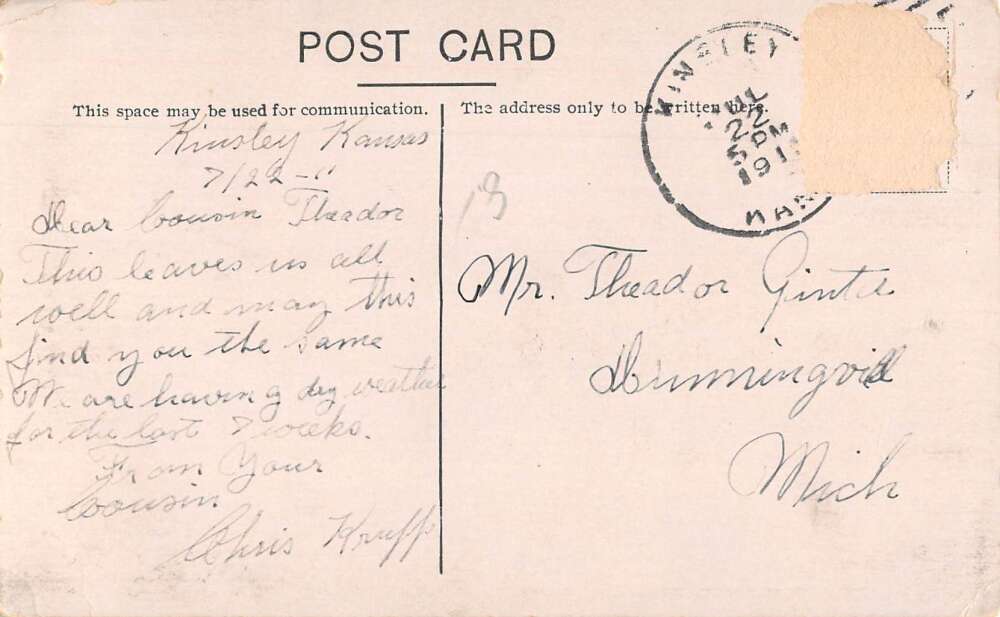 POST CARD
This space may be used for communication.
The address only to be written here.
Kinsley Kansas
7/22-11
Dear Cousin Theador
This leaves us all
well and may this
find you the same
We are having dry weather
for the last 7 weeks.
From Your
Cousin
Chris Krupp
KINSLEY
JUL
22
5 PM
191
KAN
Mr. Theador Gintd
Dunningvill
Mich